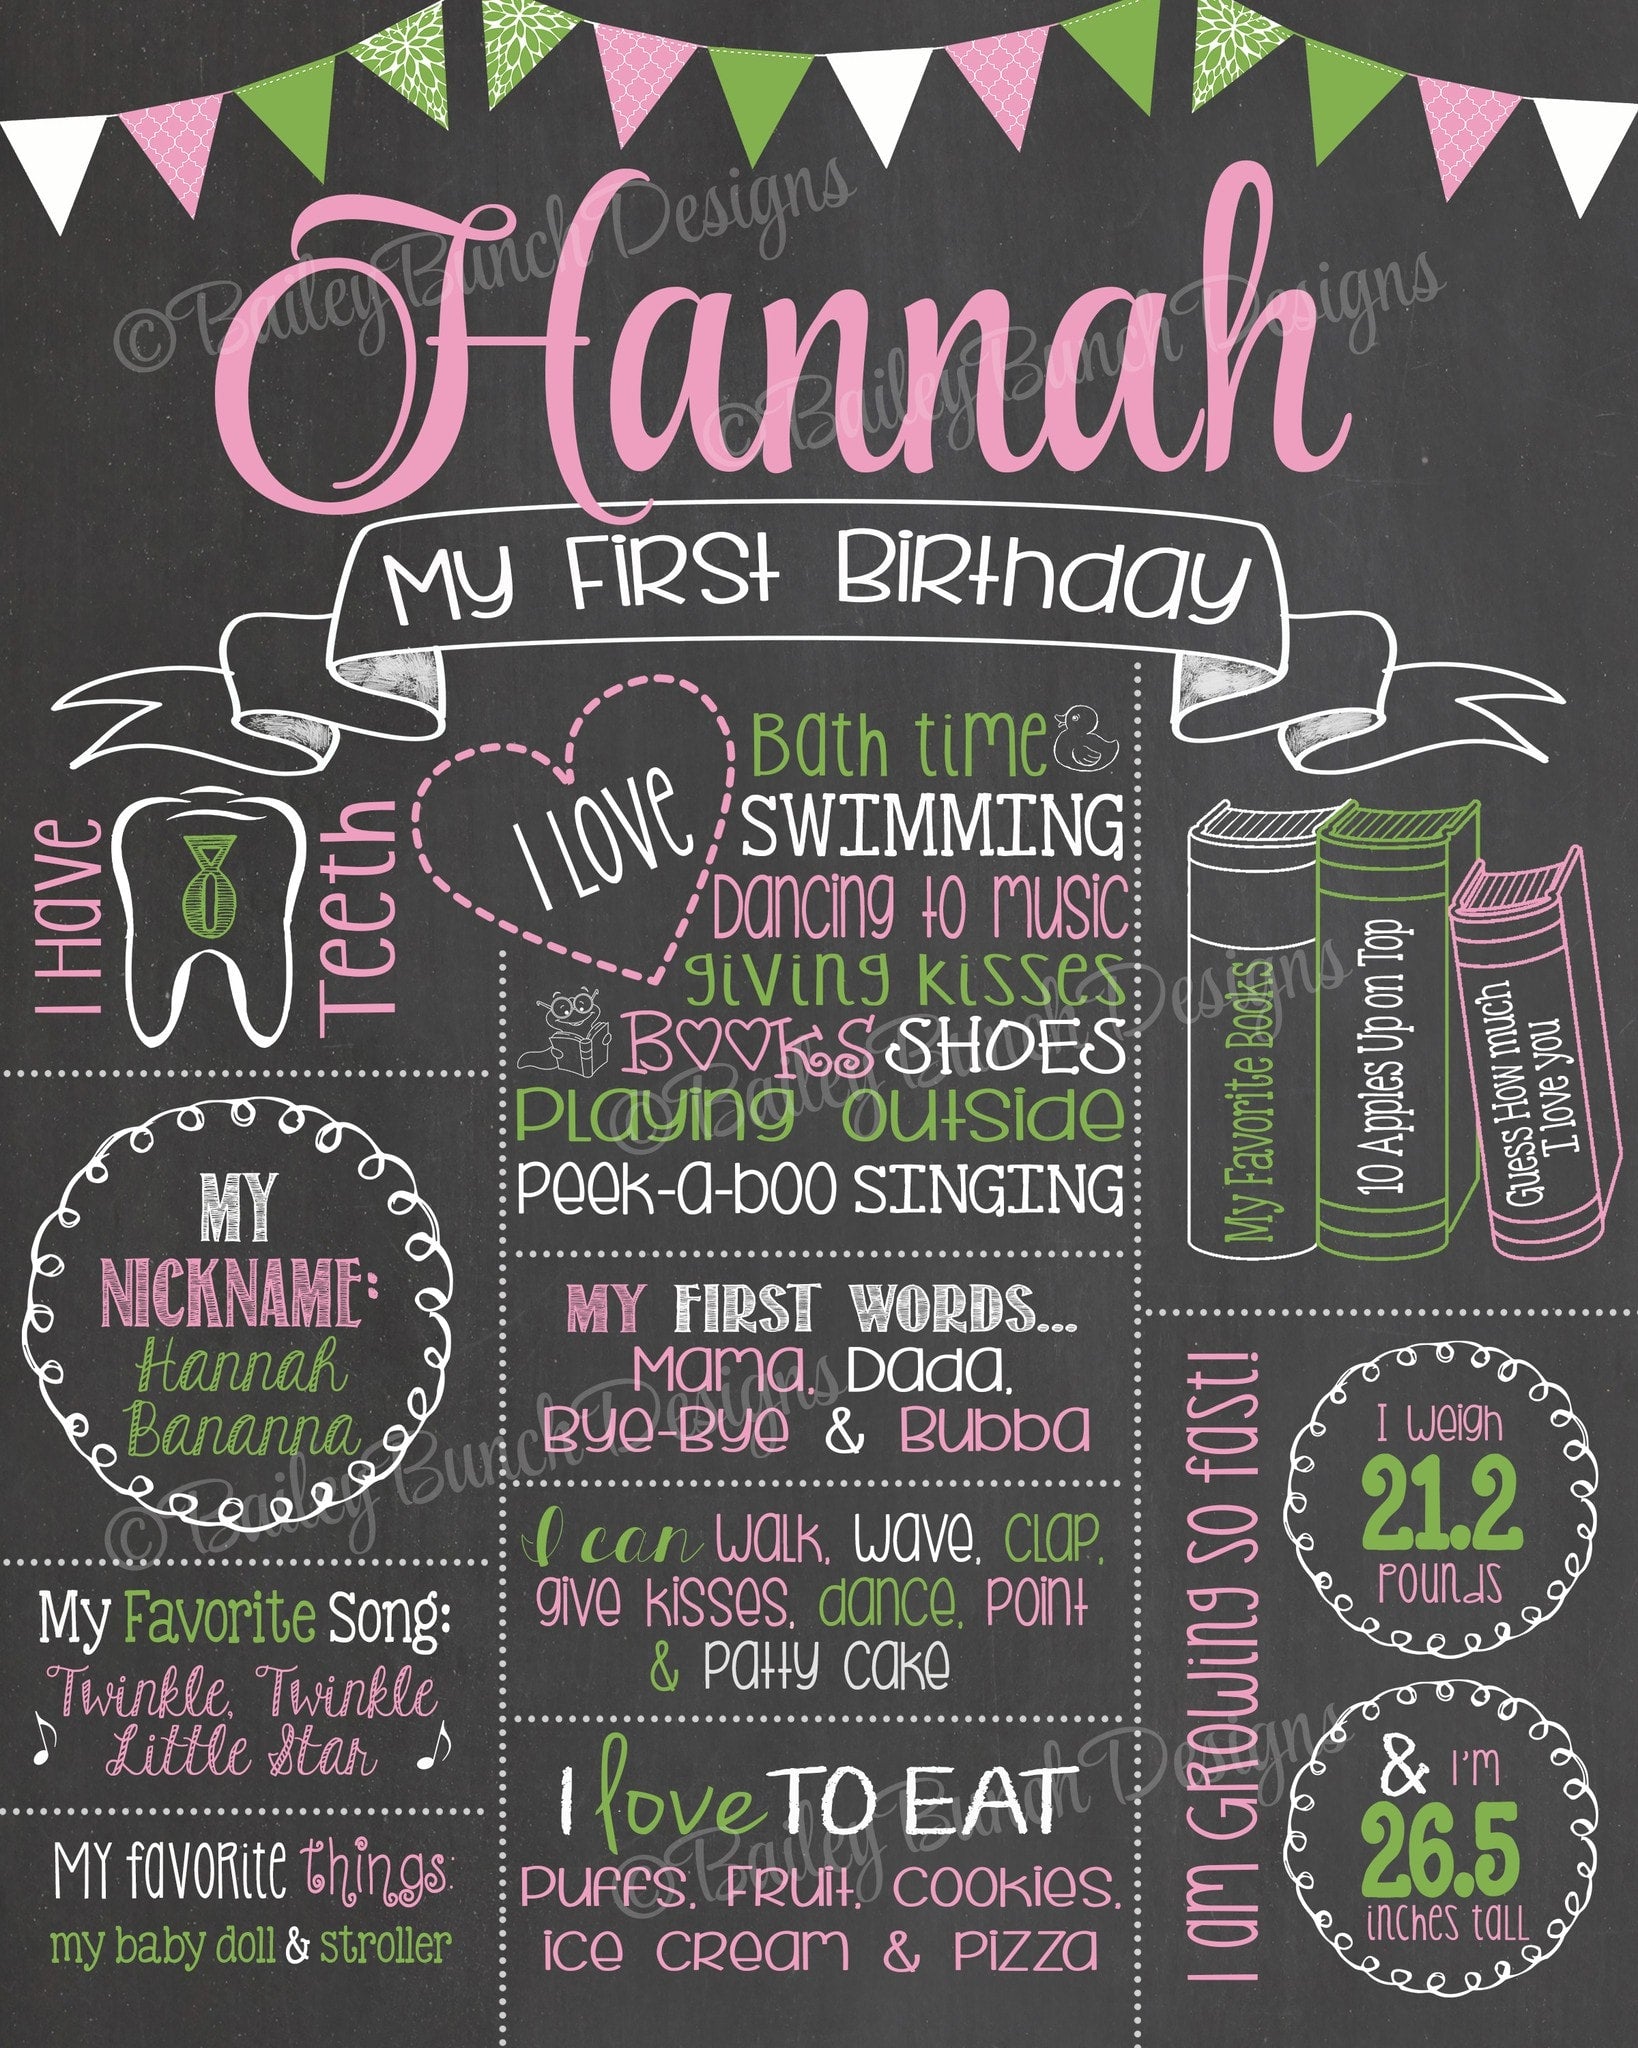 Hannah
My First Birthday
I Have
8
Teeth
I Love
Bath time
SWIMMING
Dancing to music
giving kisses
BOOKS SHOES
Playing outside
Peek-a-boo SINGING
My Favorite Books
10 Apples Up on Top
Guess How much
I love you
MY
NICKNAME:
Hannah
Bananna
MY FIRST WORDS...
Mama, Dada,
Bye-Bye & Bubba
I can walk, wave, clap,
give kisses, dance, point
& patty cake
My Favorite Song:
Twinkle, Twinkle
Little Star
My favorite things:
my baby doll & stroller
I love TO EAT
Puffs, Fruit, Cookies,
ice cream & pizza
I am Growing so fast!
I weigh
21.2
pounds
& I'm
26.5
inches tall
©BaileyBunch Designs
©BaileyBunch Designs
©BaileyBunch Designs
©BaileyBunch Designs
©BaileyBunch Designs